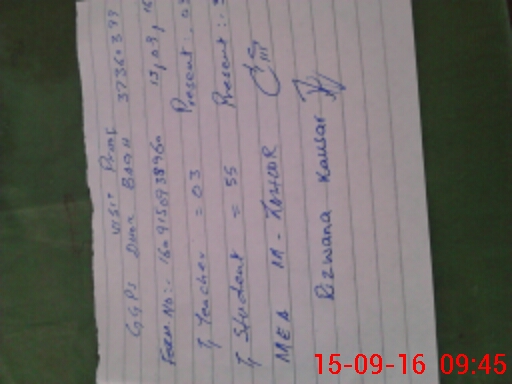 VISIT Proof
GGPS Dhar BAGH 37360399
Form No:- 1609156938960 13,09,16
T, Teacher = 03 Present: 03
T, Student = 55 Present:
MEA M-ZOHOOR
Rizwana Kausar
15-09-16 09:45